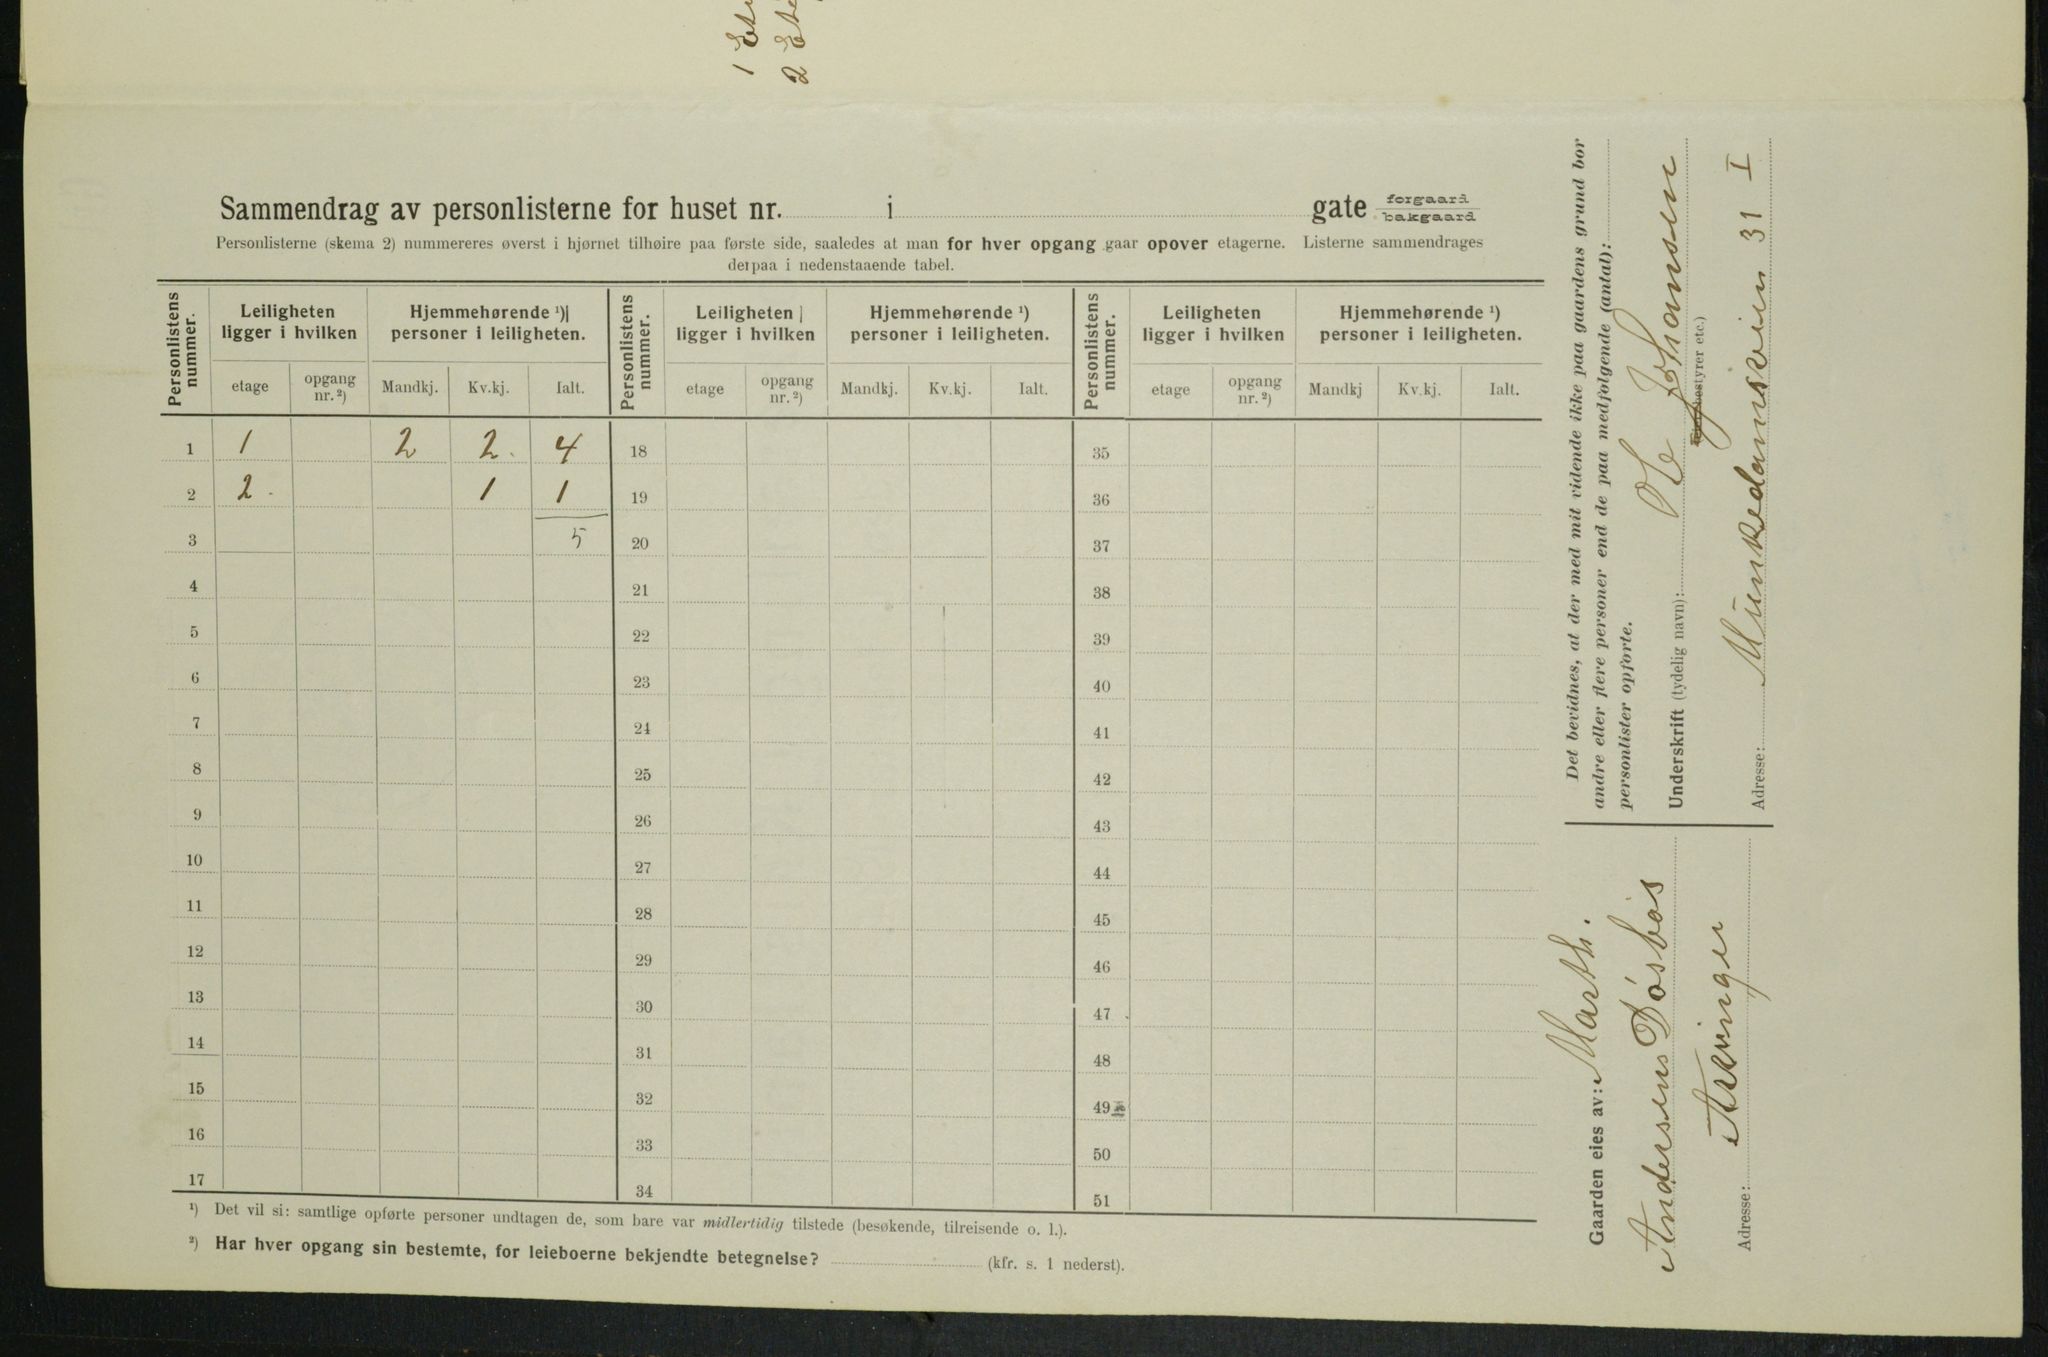 1 Et
2 Et
Sammendrag av personlisterne for huset nr. i gate forgaard bakgaard
Personlisterne (skema 2) nummereres øverst i hjørnet tilhøire paa første side, saaledes at man for hver opgang gaar opover etagerne. Listerne sammendrages
derpaa i nedenstaaende tabel.
Personlistens nummer. Leiligheten ligger i hvilken Hjemmehørende ¹) personer i leiligheten. Personlistens nummer. Leiligheten ligger i hvilken Hjemmehørende ¹) personer i leiligheten. Personlistens nummer. Leiligheten ligger i hvilken Hjemmehørende ¹) personer i leiligheten.
etage opgang nr. ²) Mandkj. Kv.kj. Ialt. etage opgang nr. ²) Mandkj. Kv.kj. Ialt. etage opgang nr. ²) Mandkj Kv.kj. Ialt.
1 1 2 2 4 18 35
2 2 1 1 19 36
3 5 20 37
4 21 38
5 22 39
6 23 40
7 24 41
8 25 42
9 26 43
10 27 44
11 28 45
12 29 46
13 30 47
14 31 48
15 32 49
16 33 50
17 34 51
¹) Det vil si: samtlige opførte personer undtagen de, som bare var midlertidig tilstede (besøkende, tilreisende o. l.).
²) Har hver opgang sin bestemte, for leieboerne bekjendte betegnelse? (kfr. s. 1 nederst).
Det bevidnes, at der med mit vidende ikke paa gaardens grund bor
andre eller flere personer end de paa medfølgende (antal):
personlister opførte.
Underskrift (tydelig navn): Johansen
bestyrer etc.)
Adresse: Munkedamsveien 31 I
Gaarden eies av: Marth.
Andersens Dösbøs
Adresse: